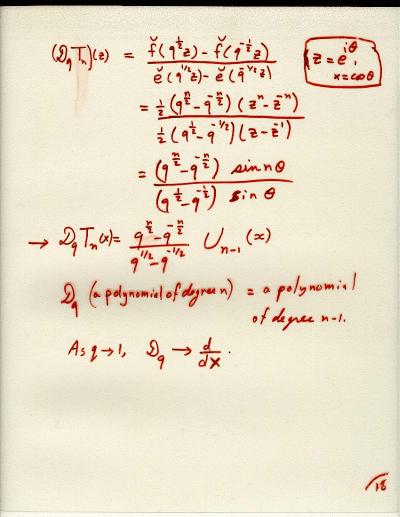 (𝒟_q T_n)(z) = (f̆(q^{1/2}z) - f̆(q^{-1/2}z)) / (ĕ(q^{1/2}z) - ĕ(q^{-1/2}z))
z = e^{iθ},
x = cosθ
= (½(q^{n/2} - q^{-n/2})(z^n - z^{-n})) / (½(q^{½} - q^{-1/2})(z - z^{-1}))
= ((q^{n/2} - q^{-n/2}) sin nθ) / ((q^{½} - q^{-½}) sin θ)
→ 𝒟_q T_n(x) = (q^{n/2} - q^{-n/2}) / (q^{1/2} - q^{-1/2}) U_{n-1}(x)
𝒟_q (a polynomial of degree n) = a polynomial
of degree n-1.
As q → 1, 𝒟_q → d/dx.
18